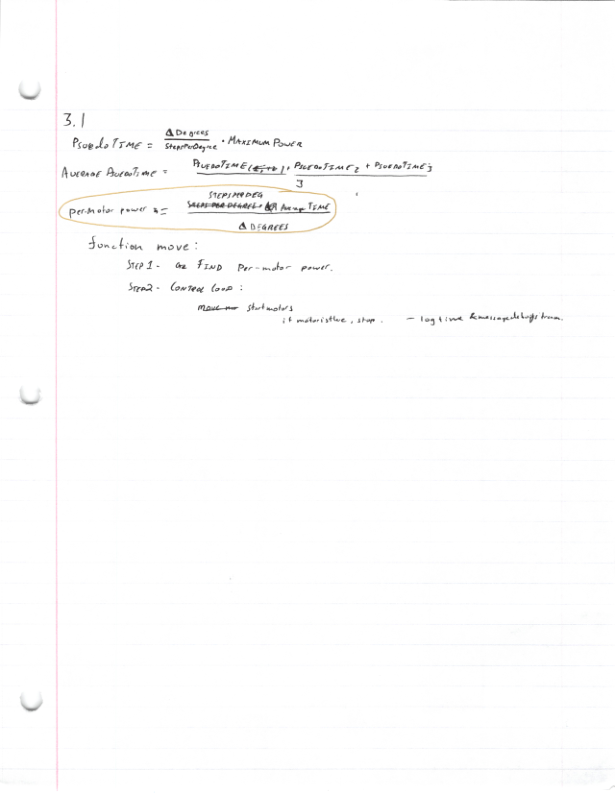 3.1
PSUEDO TIME = Δ Degrees / StepsPerDegree · MAXIMUM POWER
AVERAGE PSUEDOTIME = PSUEDOTIME 1 + PSUEDOTIME 2 + PSUEDOTIME 3 / 3
per-motor power = STEPS PER DEG Average TIME / Δ DEGREES
function move:
STEP 1 - FIND Per-motor power.
STEP 2 - CONTROL LOOP:
move start motors
if motor is there, stop. - log time